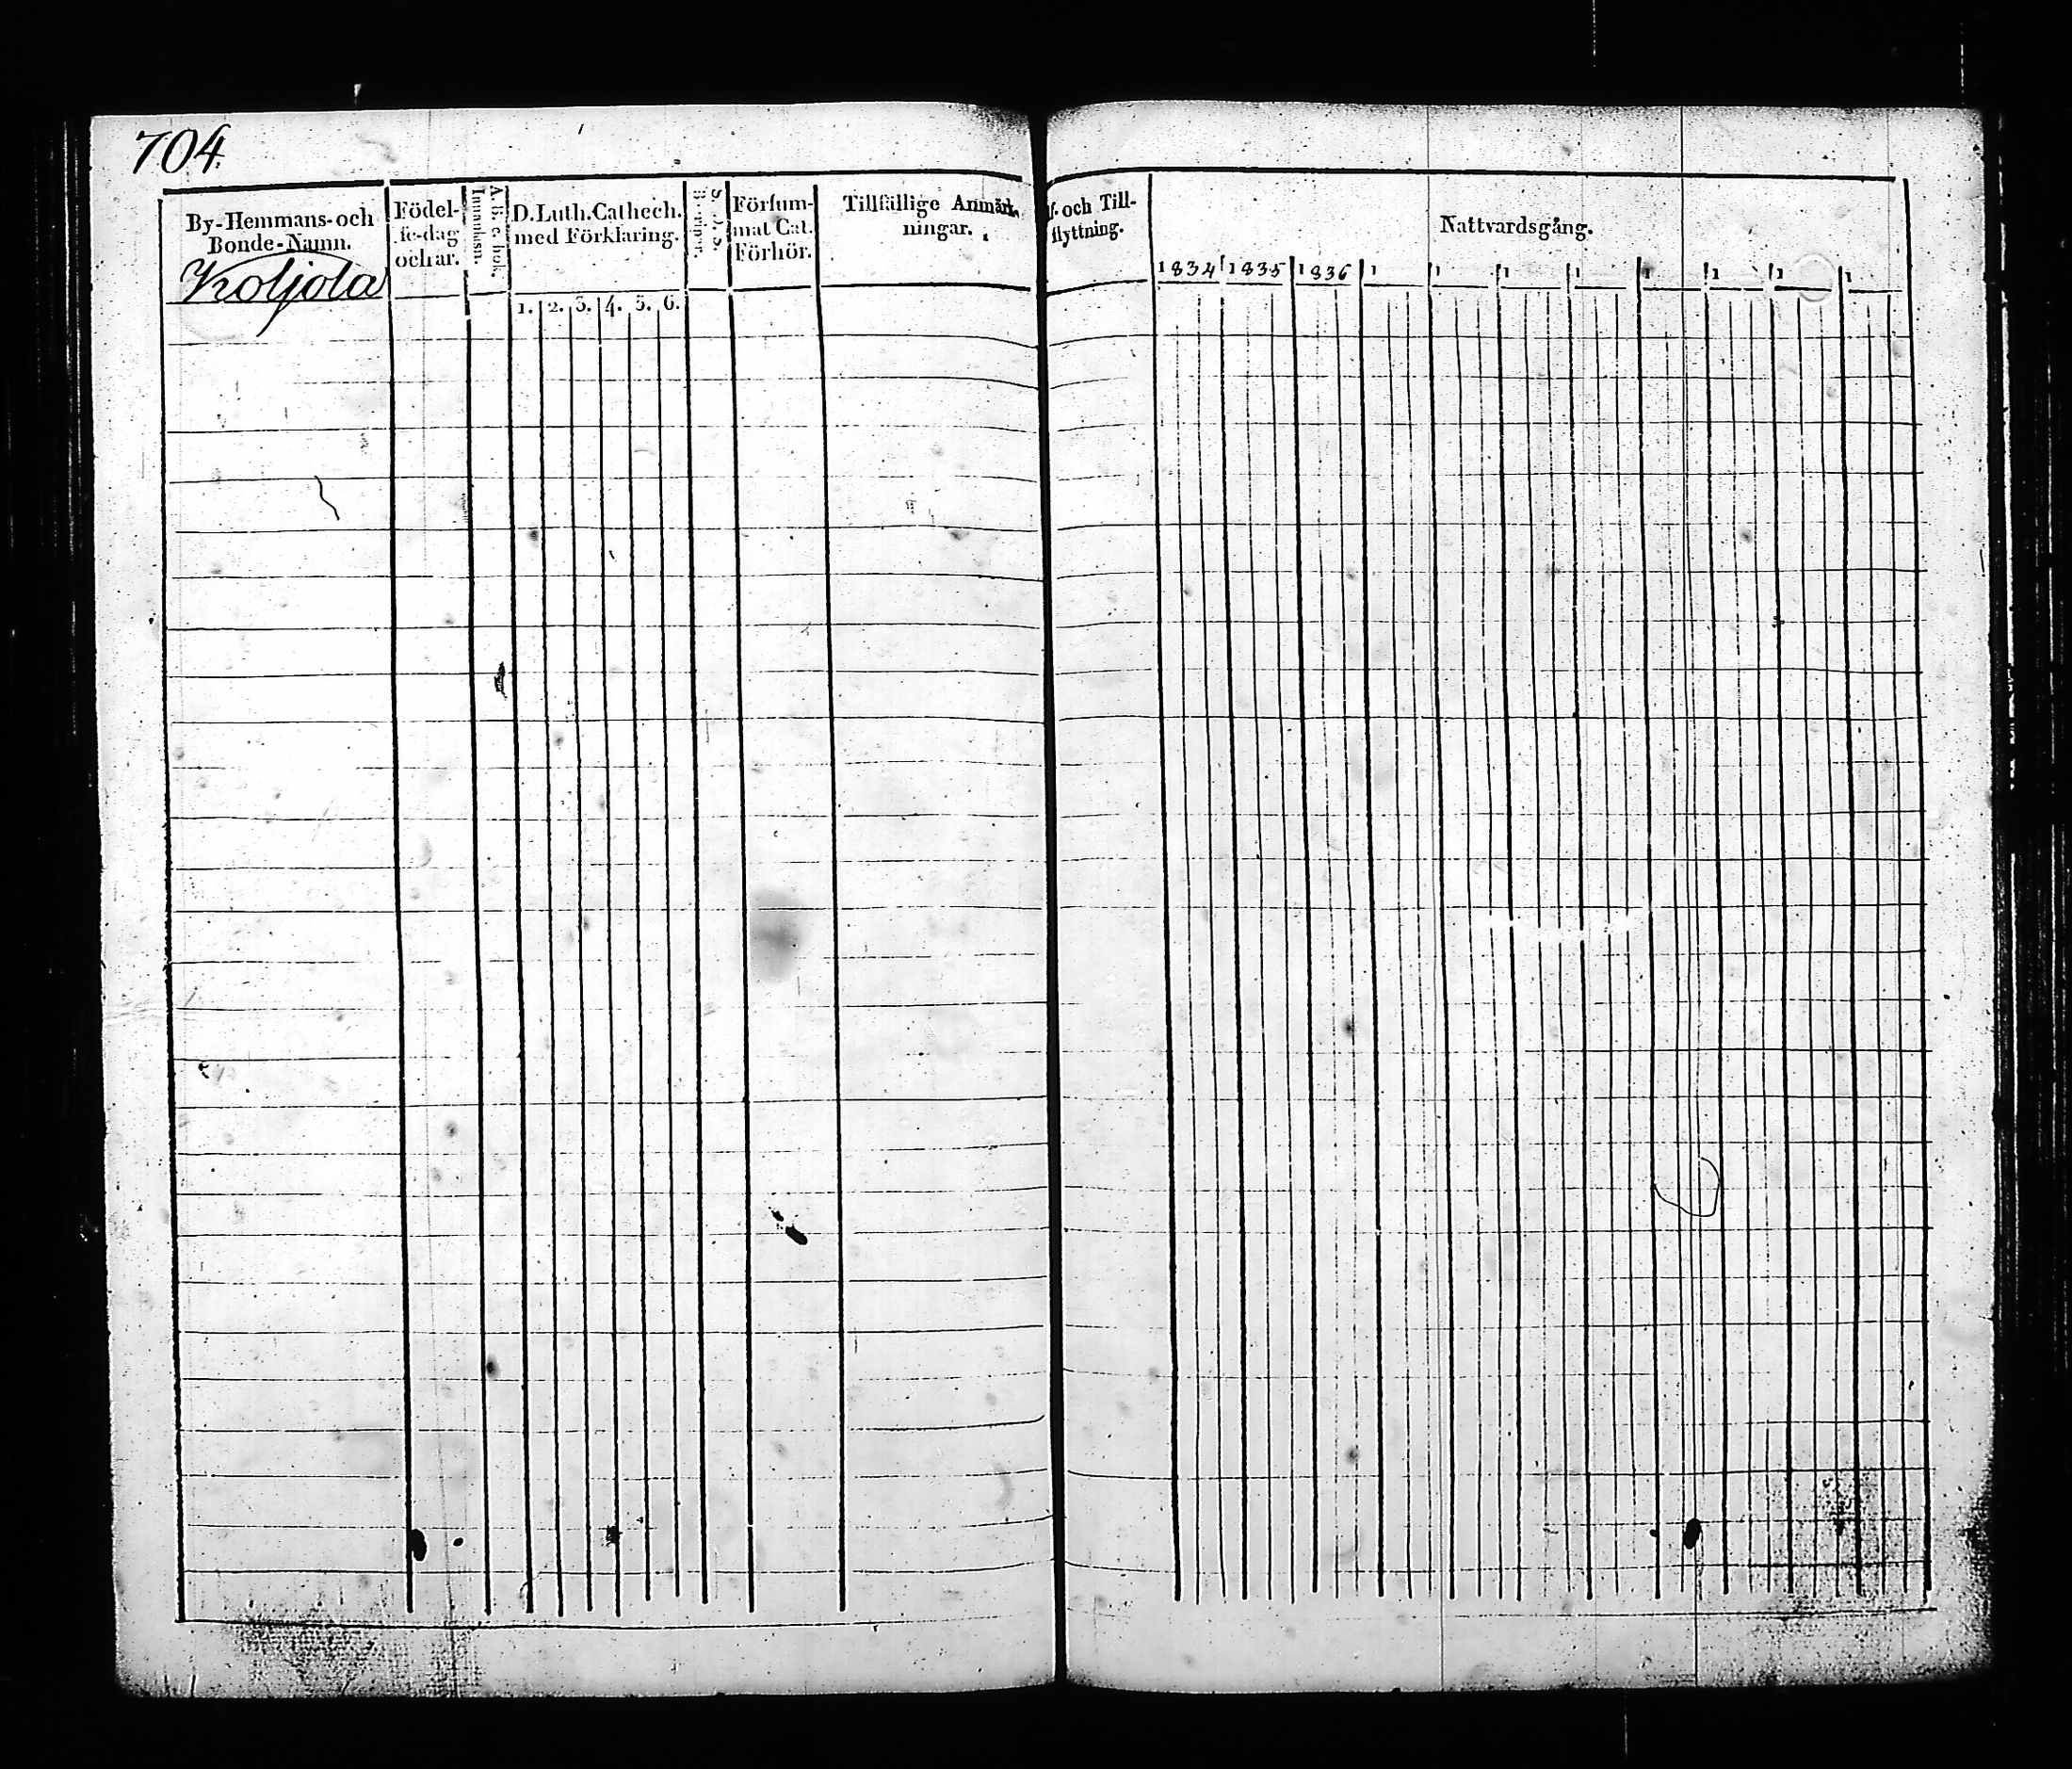 704.
By-Hemmans- och
Bonde-Namn.
Kotjola
Födel-
se-dag
och ar.
A. B. c. bok.
Innanläsn.
D. Luth. Cathech.
med Förklaring.
1. 2. 3. 4. 5. 6.
Försum-
mat Cat.
Förhör.
Tillfällige Anmärk-
ningar.
f- och Till-
flyttning.
Nattvardsgång.
1834 1835 1836 1 1 1 1 1 1 1 1